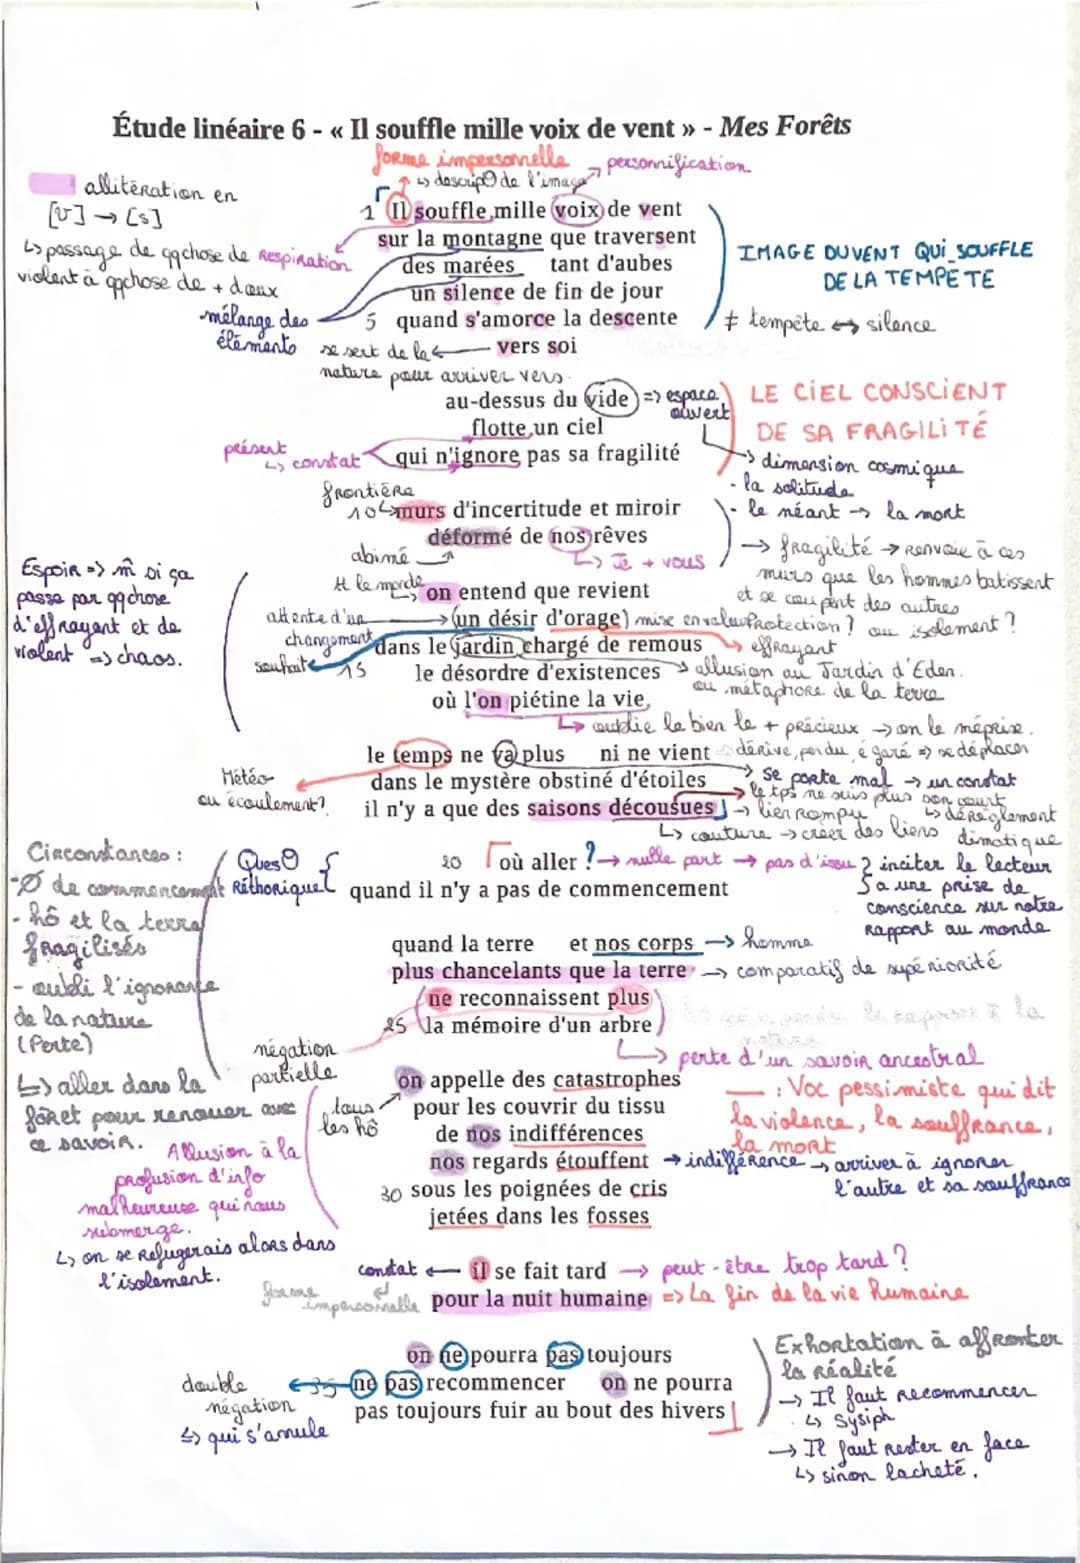 Étude linéaire 6 - « Il souffle mille voix de vent » - Mes Forêts
forme impersonnelle
↳ descripᶿ de l'image
→ personnification
allitération en
[v] → [s]
↳ passage de qqchose de
violent à qqchose de + doux
Respiration
mélange des
éléments
1 Il souffle mille voix de vent
sur la montagne que traversent
des marées tant d'aubes
un silence de fin de jour
5 quand s'amorce la descente
vers soi
IMAGE DU VENT QUI SOUFFLE
DE LA TEMPETE
≠ tempête ↔ silence
se sert de la ←
nature pour arriver vers
au-dessus du vide
flotte un ciel
qui n'ignore pas sa fragilité
=> espace
ouvert
présent
↳ constat
LE CIEL CONSCIENT
DE SA FRAGILITÉ
→ dimension cosmique
- la solitude
- le néant → la mort
frontière
10 murs d'incertitude et miroir
déformé de nos rêves
abimé
↳ Je + vous
→ fragilité → renvoie à ces
murs que les hommes batissent
et se coupent des autres
Protection ? ou isolement ?
Espoir => m̂ si ça
passe par qqchose
d'effrayant et de
violent => chaos.
tt le monde
on entend que revient
attente d'un
changement
souhait
un désir d'orage
mise en valeur
dans le jardin chargé de remous
effrayant
15 le désordre d'existences
où l'on piétine la vie
allusion au Jardin d'Eden.
ou métaphore de la terre
↳ oublie le bien le + précieux → on le méprise.
le temps ne va plus ni ne vient
dérive, perdu, égaré => se déplacer
dans le mystère obstiné d'étoiles
→ se porte mal → un constat
il n'y a que des saisons décousues
le tps ne suis plus son court
→ lien rompu
↳ déréglement
climatique
↳ couture → créer des liens
Météo
ou écoulement ?
Circonstances :
- Ø de commencement
- hô et la terre
fragilisés
- oubli l'ignorance
de la nature
(Perte)
↳ aller dans la
forêt pour renouer avec
ce savoir.
Quesᶿ
Réthorique
20 où aller ?
→ nulle part → pas d'issu
quand il n'y a pas de commencement
inciter le lecteur
à une prise de
conscience sur notre
rapport au monde
quand la terre et nos corps → homme
plus chancelants que la terre → comparatif de supériorité
ne reconnaissent plus
25 la mémoire d'un arbre
négation
partielle
↳ perte d'un savoir ancestral
on appelle des catastrophes
pour les couvrir du tissu
de nos indifférences
nos regards étouffent
30 sous les poignées de cris
jetées dans les fosses
tous
les hô
— : Voc pessimiste qui dit
la violence, la souffrance,
la mort
→ indifférence → arriver à ignorer
l'autre et sa souffrance
Allusion à la
profusion d'info
malheureuse qui nous
submerge.
↳ on se refugerais alors dans
l'isolement.
constat ← il se fait tard → peut-être trop tard ?
forme
impersonnelle
pour la nuit humaine => La fin de la vie humaine
on ne pourra pas toujours
35 ne pas recommencer on ne pourra
pas toujours fuir au bout des hivers
double
négation
↳ qui s'annule
Exhortation à affronter
la réalité
→ Il faut recommencer
↳ Sysiph
→ Il faut rester en face
↳ sinon lacheté.